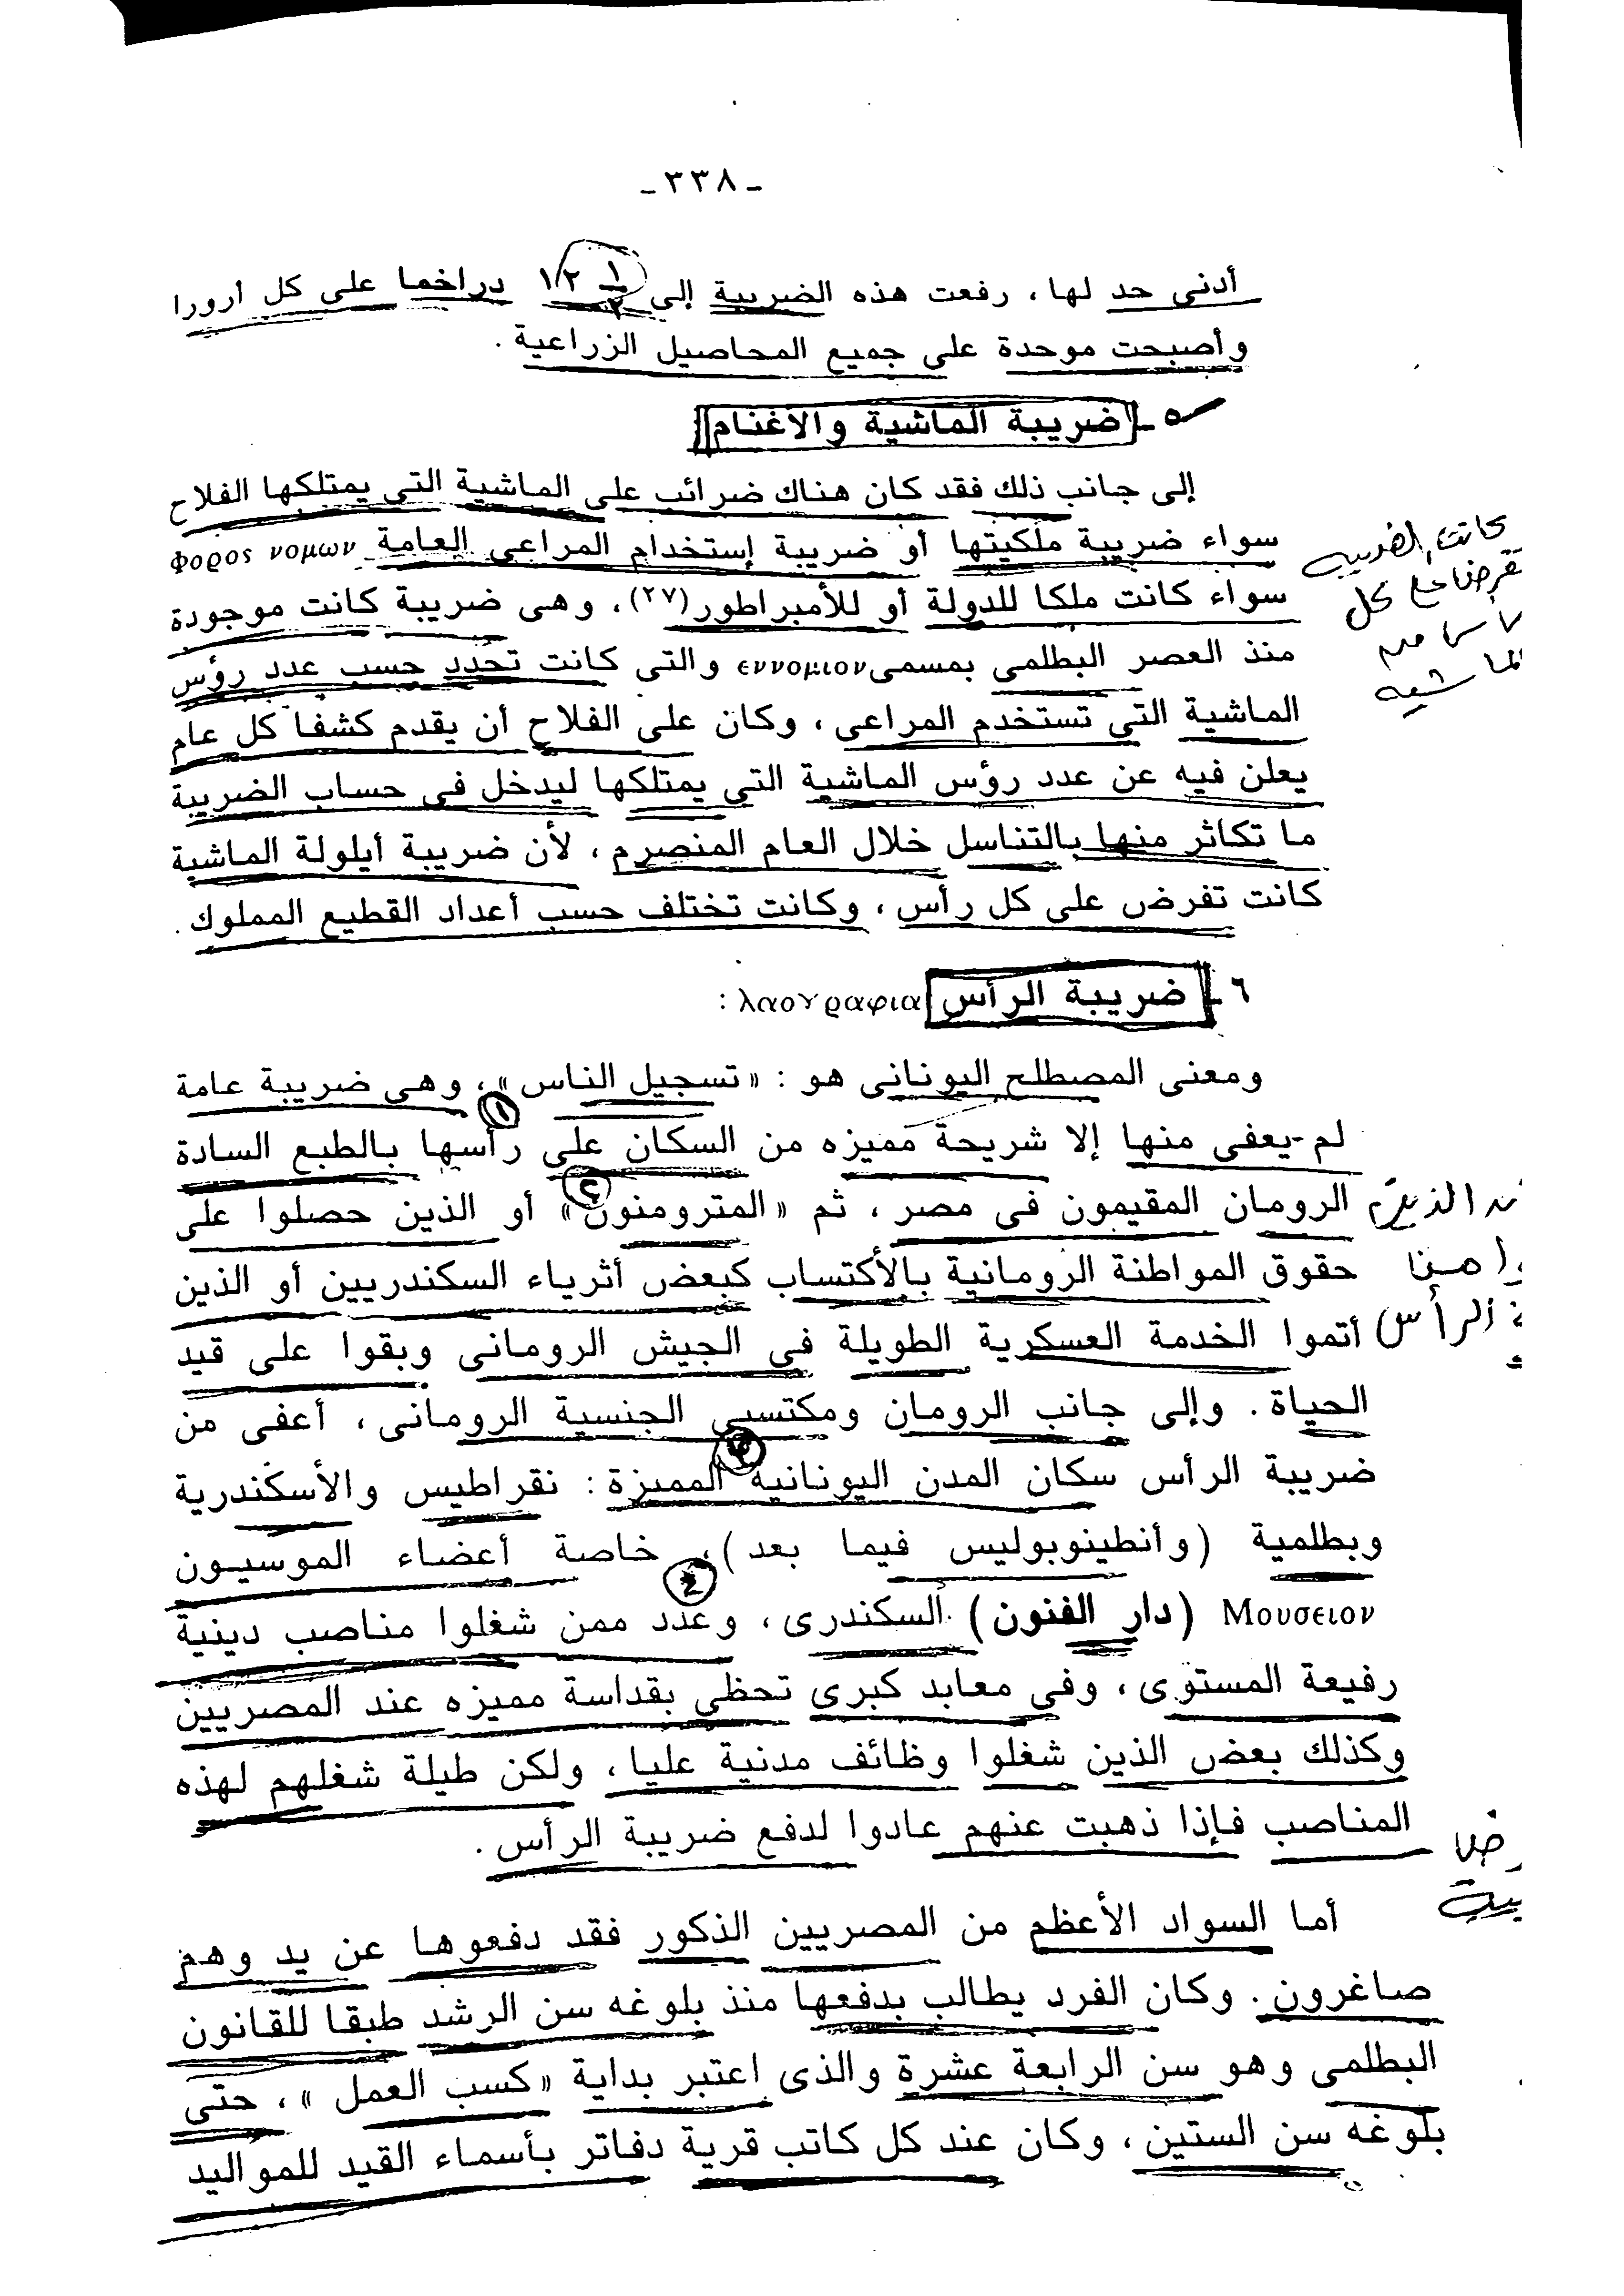 ـ ٣٣٨ ـ
أدنى حد لها ، رفعت هذه الضريبة إلى ١/٢ ١ دراخما على كل أرورا
وأصبحت موحدة على جميع المحاصيل الزراعية .
٥ ـ ضريبة الماشية والأغنام
إلى جانب ذلك فقد كان هناك ضرائب على الماشية التى يمتلكها الفلاح
سواء ضريبة ملكيتها أو ضريبة إستخدام المراعى العامة Φορος νομων
سواء كانت ملكا للدولة أو للأمبراطور(٢٧) ، وهى ضريبة كانت موجودة
منذ العصر البطلمى بمسمى εννομιον والتى كانت تحدد حسب عدد رؤس
الماشية التى تستخدم المراعى ، وكان على الفلاح أن يقدم كشفا كل عام
يعلن فيه عن عدد رؤس الماشية التى يمتلكها ليدخل فى حساب الضريبة
ما تكاثر منها بالتناسل خلال العام المنصرم ، لأن ضريبة أيلولة الماشية
كانت تفرض على كل رأس ، وكانت تختلف حسب أعداد القطيع المملوك .
كانت الضريبه
تفرض على كل
راس من
الماشيه
٦ ـ ضريبة الرأس λαογραφια :
ومعنى المصطلح اليونانى هو : « تسجيل الناس » ، وهى ضريبة عامة
لم يعفى منها إلا شريحة مميزه من السكان على رأسها بالطبع السادة
الرومان المقيمون فى مصر ، ثم « المترومنون » أو الذين حصلوا على
حقوق المواطنة الرومانية بالأكتساب كبعض أثرياء السكندريين أو الذين
أتموا الخدمة العسكرية الطويلة في الجيش الرومانى وبقوا على قيد
الحياة . وإلى جانب الرومان ومكتسبى الجنسية الرومانى ، أعفى من
ضريبة الرأس سكان المدن اليونانية المميزة : نقراطيس والأسكندرية
وبطلمية (وأنطينوبوليس فيما بعد) ، خاصة أعضاء الموسيون
Μουσειον (دار الفنون) السكندرى ، وعدد ممن شغلوا مناصب دينية
رفيعة المستوى ، وفي معابد كبرى تحظى بقداسة مميزه عند المصريين
وكذلك بعض الذين شغلوا وظائف مدنية عليا ، ولكن طيلة شغلهم لهذه
المناصب فإذا ذهبت عنهم عادوا لدفع ضريبة الرأس .
أما السواد الأعظم من المصريين الذكور فقد دفعوها عن يد وهم
صاغرون . وكان الفرد يطالب بدفعها منذ بلوغه سن الرشد طبقا للقانون
البطلمى وهو سن الرابعة عشرة والذى اعتبر بداية « كسب العمل » ، حتى
بلوغه سن الستين ، وكان عند كل كاتب قرية دفاتر بأسماء القيد للمواليد